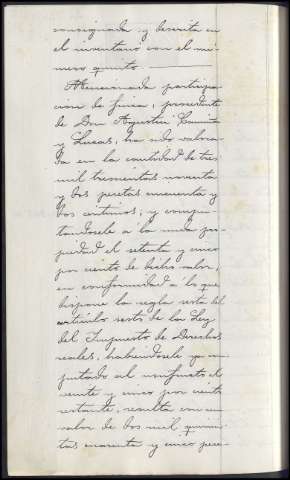 consignada y descrita en
el inventario con el nú-
mero quinto.
Mencionada participa-
cion de fincas, procedente
de Don Agustin
y Lucas, ha sido valora-
da en la cantidad de tres
mil trescientas noventa
y dos pesetas cincuenta y
dos centimos, y compu-
tandosele a la nuda pro-
piedad el setenta y cinco
por ciento de dicho valor,
en conformidad a lo que
dispone la regla sesta del
artículo sesto de la Ley
del Impuesto de Derechos
reales, habiendosele ya im-
putado al usufructo el
veinte y cinco por ciento
restante, resulta con un
valor de dos mil quinien-
tas cuarenta y cinco pese-